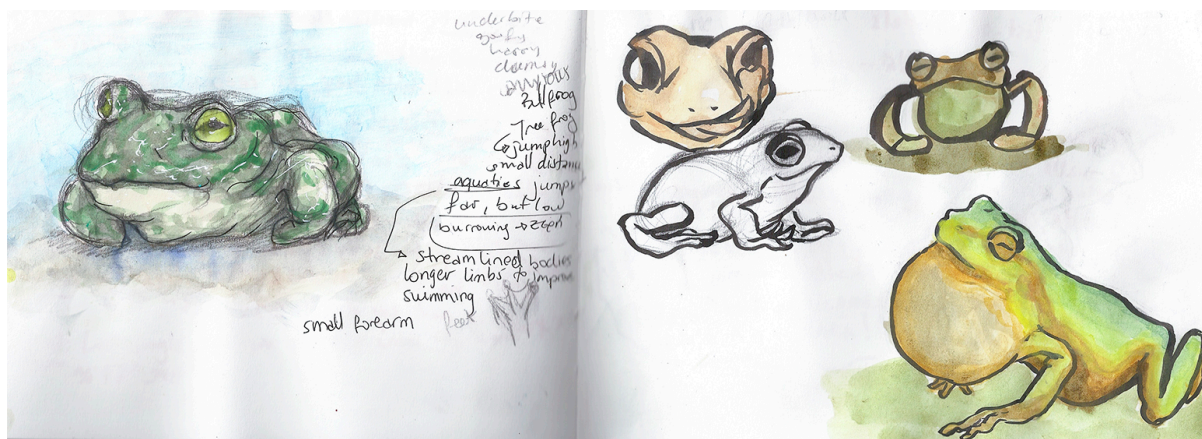 underbite
goofy
heavy
clumsy
anxious
Bullfrog
Tree frog
jump high
small distance
aquatics jump
far, but low
burrowing →
streamlined bodies
longer limbs & improve
swimming
feet
small forearm